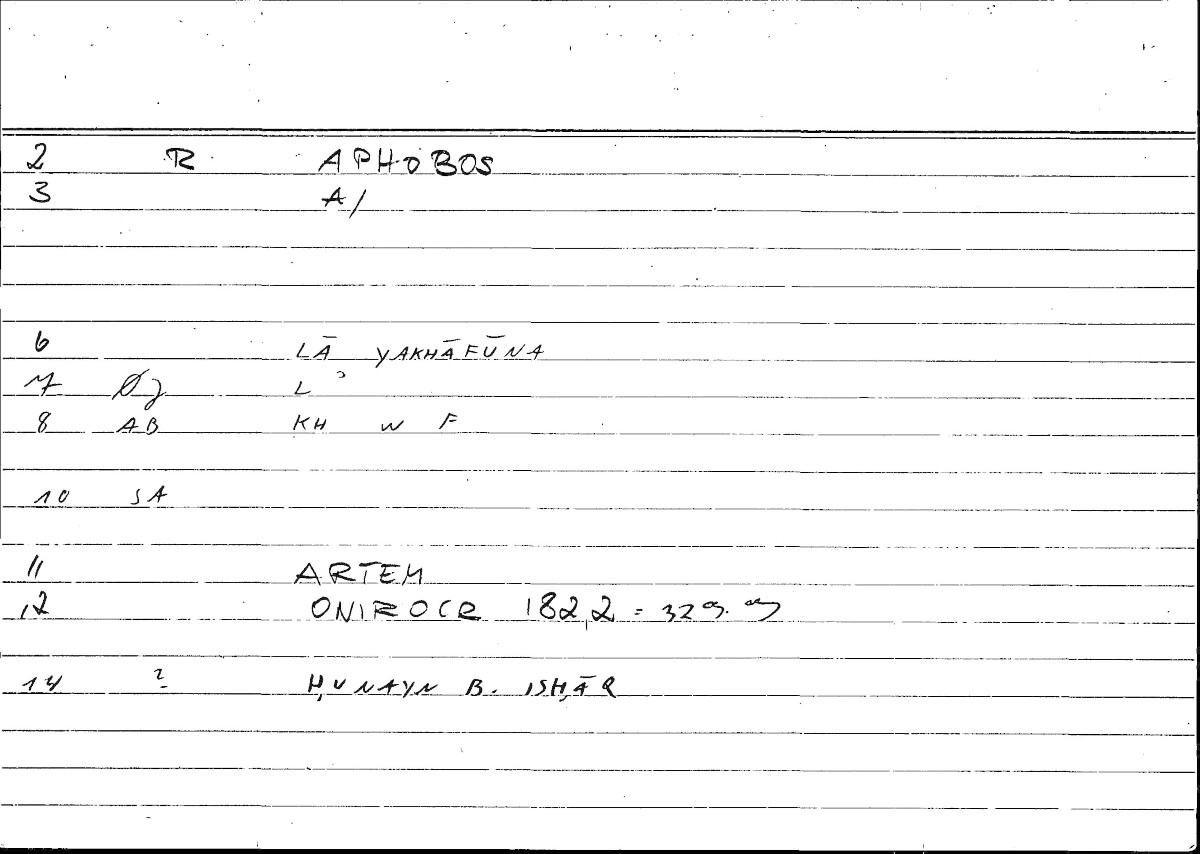 2 R APHOBOS
3 A/
6 LĀ YAKHĀFŪNA
7 Øj L ʾ
8 AB KH W F
10 SA
11 ARTEM
12 ONIROCR 182,2 = 329.
14 ? ḤUNAYN B. ISḤĀQ